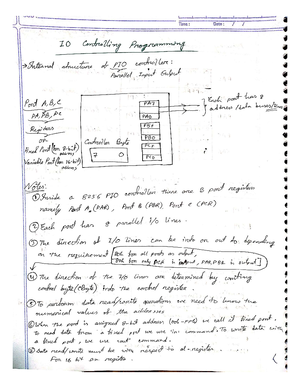 Time: Date: / /
IO Controlling Programming
→ Internal structure of PIO controllers:
Parallel Input Output
Port A, B, C
PA, PB, PC
Registers
or
PA7
PA0
PB7
PB0
PC7
PC0
Each port has 8
address/data buses/lines
Controller Byte
7 0
Notes:
① Inside a 8255 PIO controllers there are 3 port registers
namely Port A (PAR), Port B (PBR), Port C (PCR)
② Each port has 8 parallel I/O lines.
③ The direction of I/O lines can be into or out to depending
on the requirement
④ The direction of the I/O lines are determined by writing
control byte (CByte) into the control register.
⑤ To perform data read/write operations we need to know the
numerical values of the addresses
⑥ When the port is assigned 8-bit address we call it fixed port.
To read data from a fixed port we use 'in' command. To write data into
a fixed port, we use out command.
⑦ Data read/write must be with respect to al-register.
For 16 bit ax register.